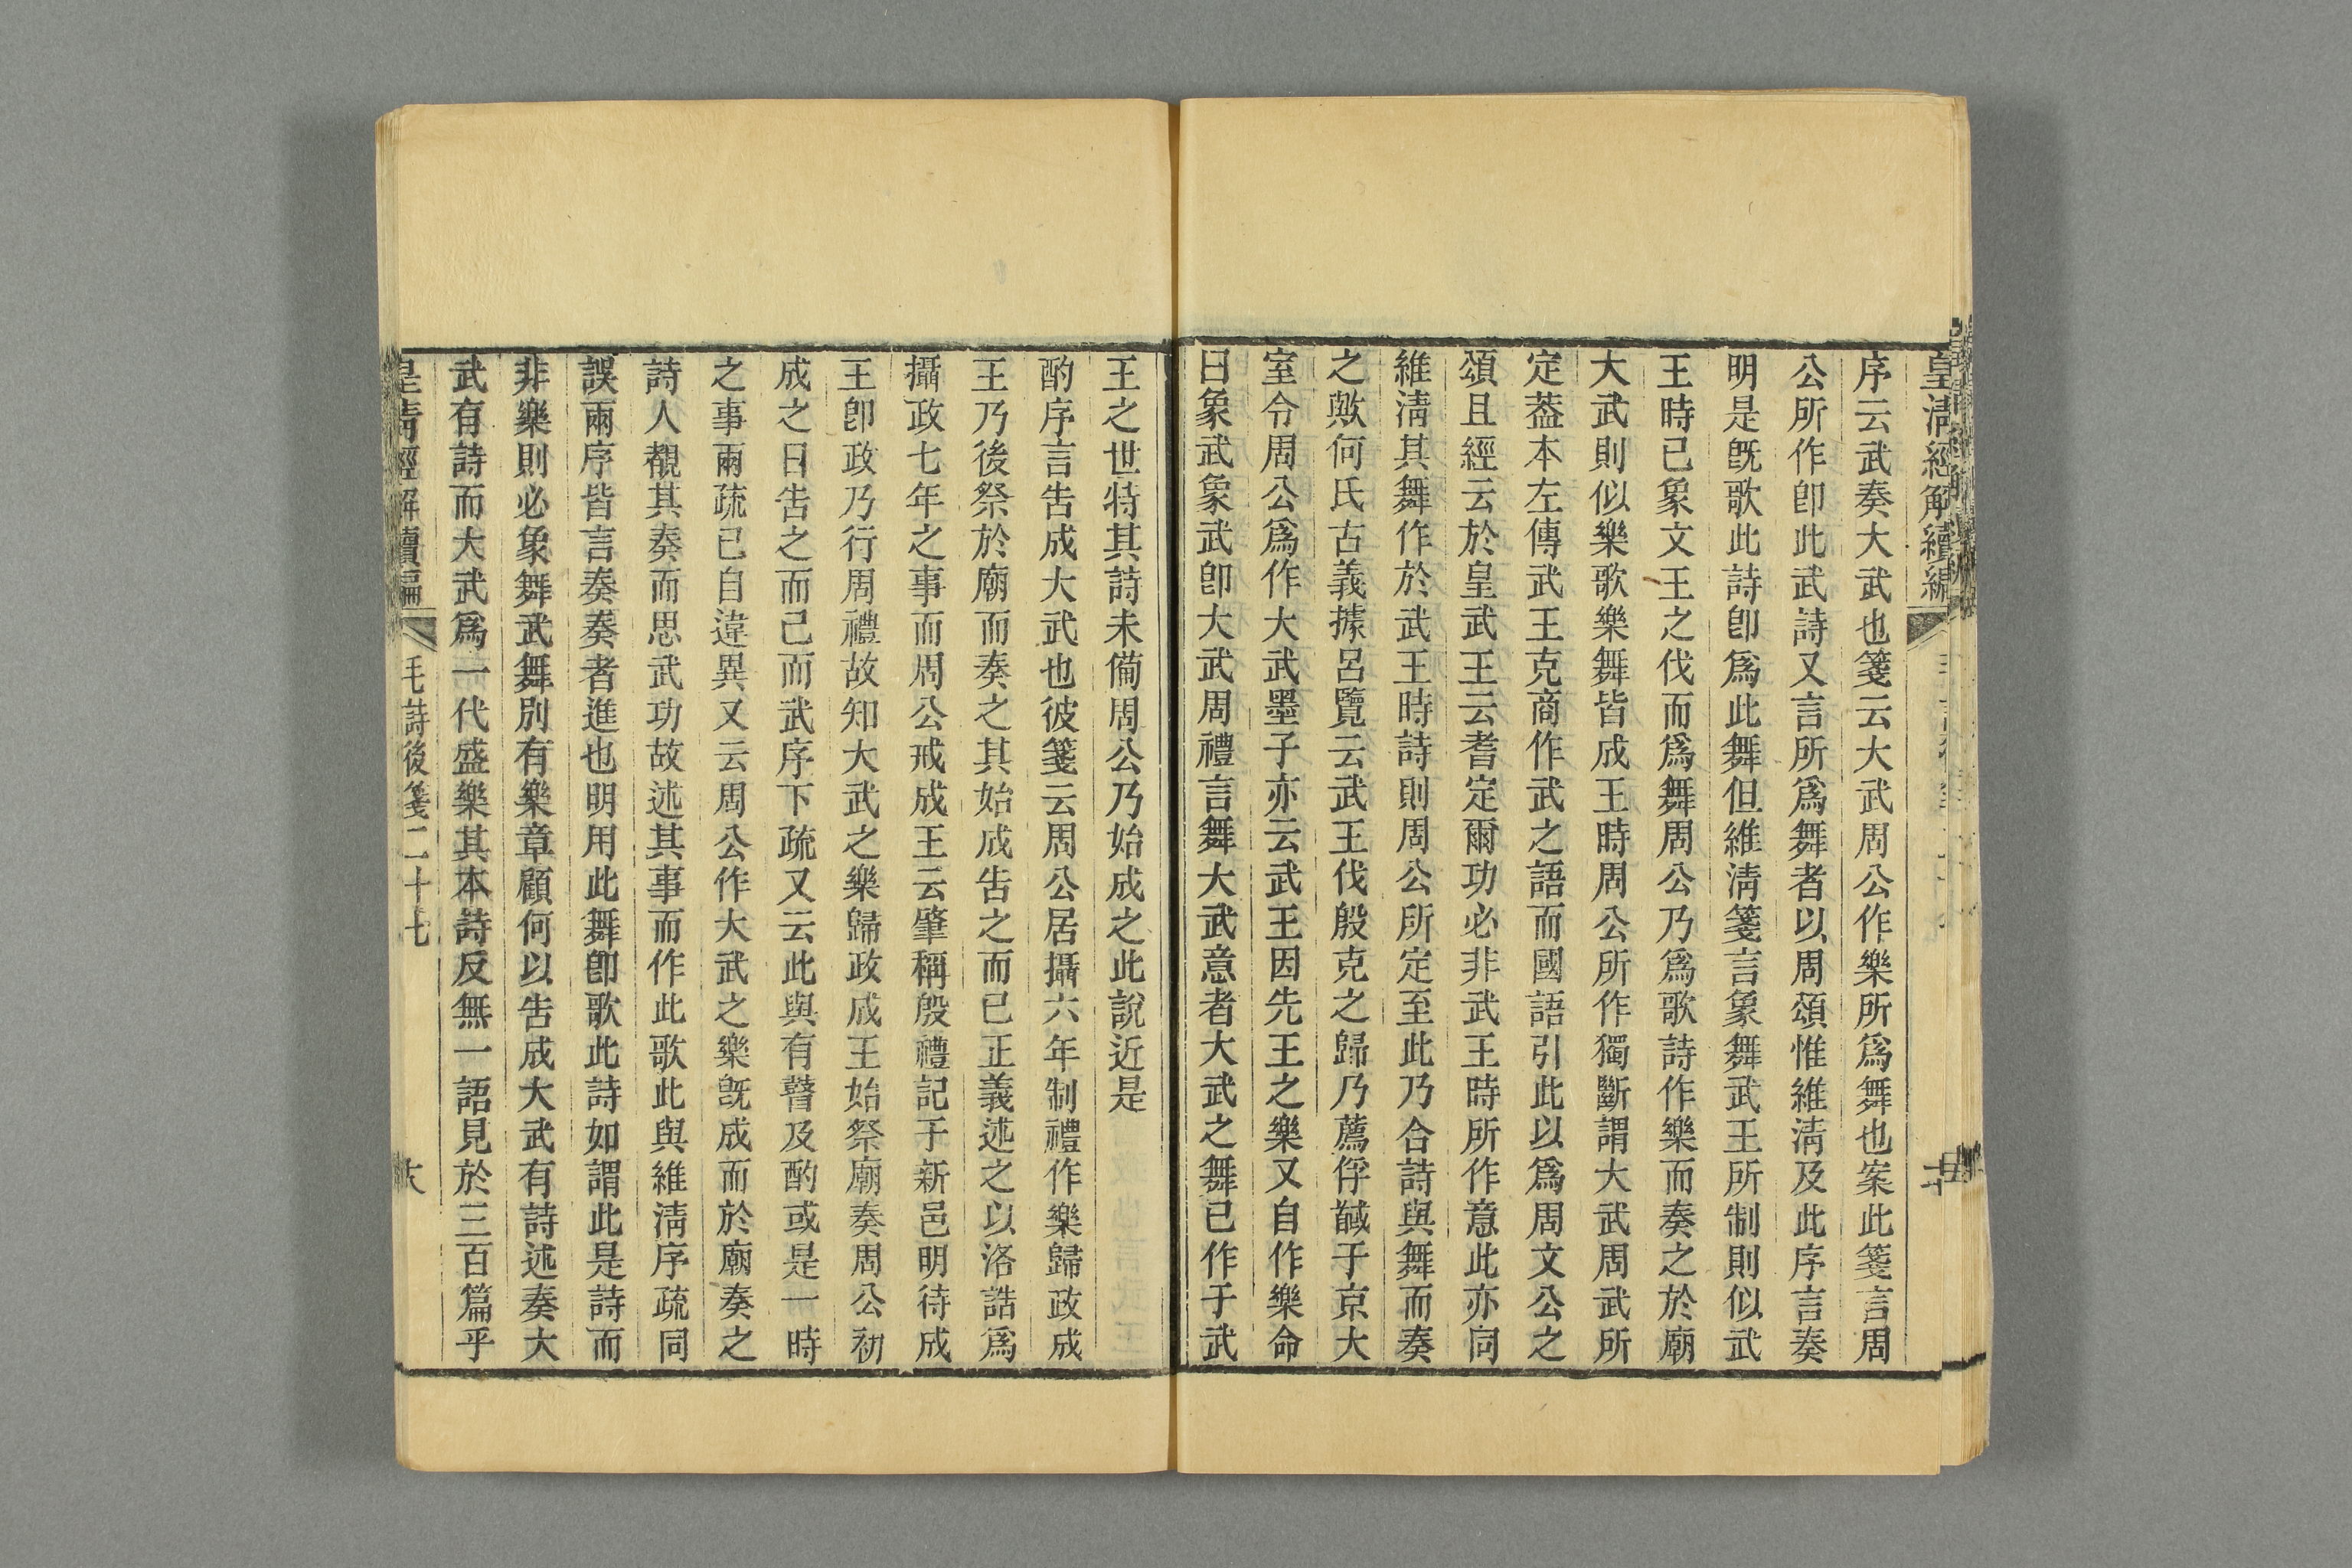 皇清經解續編
序云武奏大武也箋云大武周公作樂所爲舞也案此箋言周
公所作卽此武詩又言所爲舞者以周頌惟維淸及此序言奏
明是旣歌此詩卽爲此舞但維淸箋言象舞武王所制則似武
王時已象文王之伐而爲舞周公乃爲歌詩作樂而奏之於廟
大武則似樂歌樂舞皆成王時周公所作獨斷謂大武周武所
定葢本左傳武王克商作武之語而國語引此以爲周文公之
頌且經云於皇武王云耆定爾功必非武王時所作意此亦同
維淸其舞作於武王時詩則周公所定至此乃合詩與舞而奏
之歟何氏古義據呂覽云武王伐殷克之歸乃薦俘馘于京大
室令周公爲作大武墨子亦云武王因先王之樂又自作樂命
曰象武象武卽大武周禮言舞大武意者大武之舞已作于武
王之世特其詩未備周公乃始成之此說近是
酌序言告成大武也彼箋云周公居攝六年制禮作樂歸政成
王乃後祭於廟而奏之其始成告之而已正義述之以洛誥爲
攝政七年之事而周公戒成王云肇稱殷禮記于新邑明待成
王卽政乃行周禮故知大武之樂歸政成王始祭廟奏周公初
成之日告之而已而武序下疏又云此與有瞽及酌或是一時
之事兩疏已自違異又云周公作大武之樂旣成而於廟奏之
詩人覩其奏而思武功故述其事而作此歌此與維淸序疏同
誤兩序皆言奏奏者進也明用此舞卽歌此詩如謂此是詩而
非樂則必象舞武舞別有樂章顧何以告成大武有詩述奏大
武有詩而大武爲一代盛樂其本詩反無一語見於三百篇乎
皇淸經解續編
毛詩後箋二十七